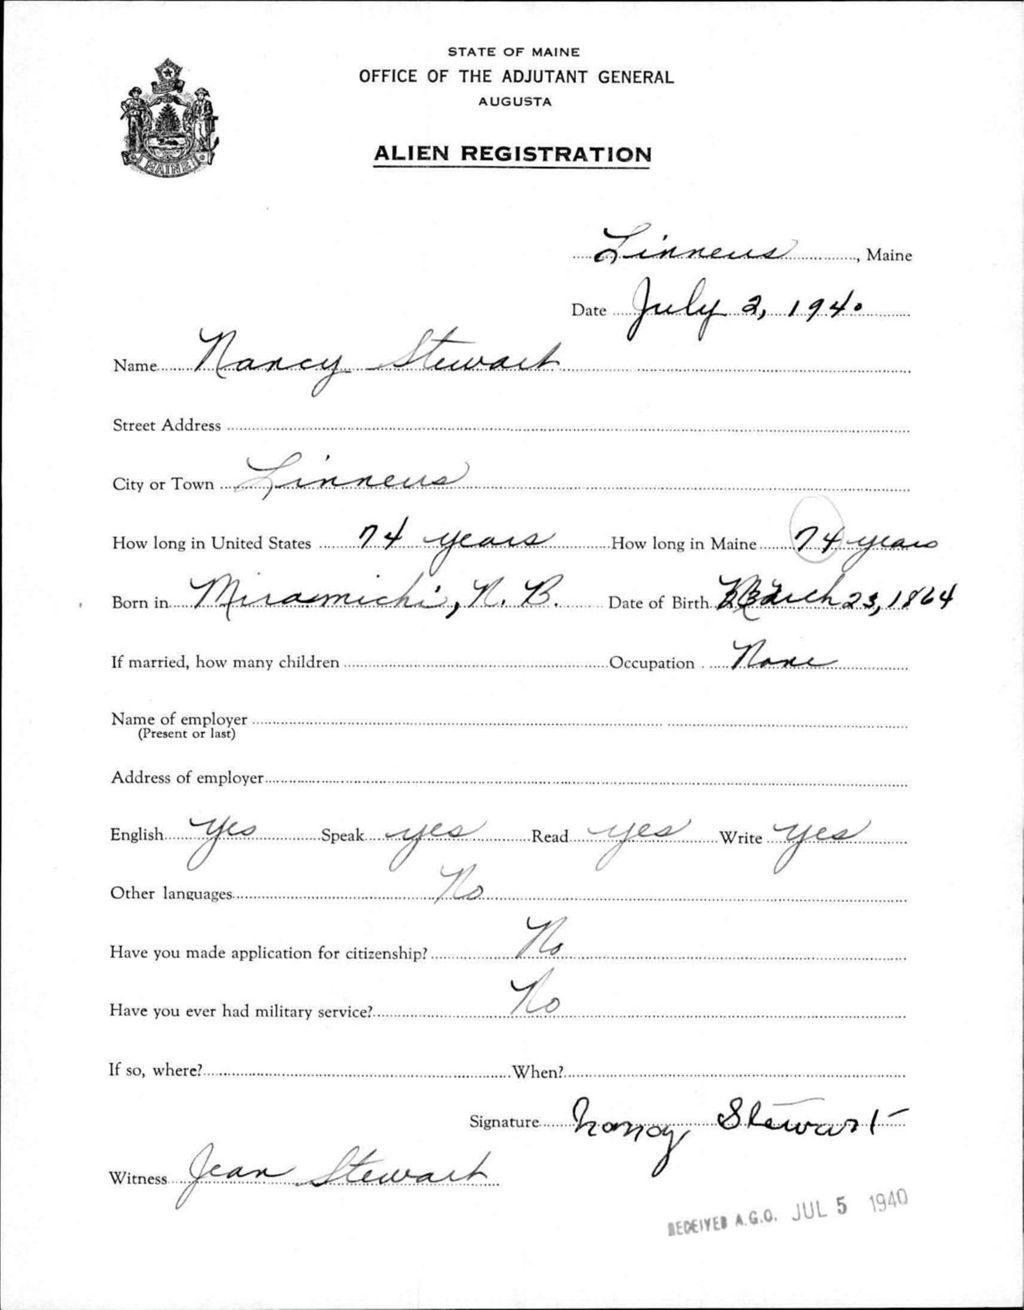 STATE OF MAINE
OFFICE OF THE ADJUTANT GENERAL
AUGUSTA
ALIEN REGISTRATION
MAINE
Linneus, Maine
Date July 2, 1940
Name Nancy Stewart
Street Address
City or Town Linneus
How long in United States 74 years How long in Maine 74 years
Born in Miramichi, N. B. Date of Birth March 23, 1864
If married, how many children Occupation None
Name of employer
(Present or last)
Address of employer
English Yes Speak yes Read yes Write yes
Other languages No
Have you made application for citizenship? No
Have you ever had military service? No
If so, where? When?
Signature Nancy Stewart
Witness Jean Stewart
RECEIVED A.G.O. JUL 5 1940